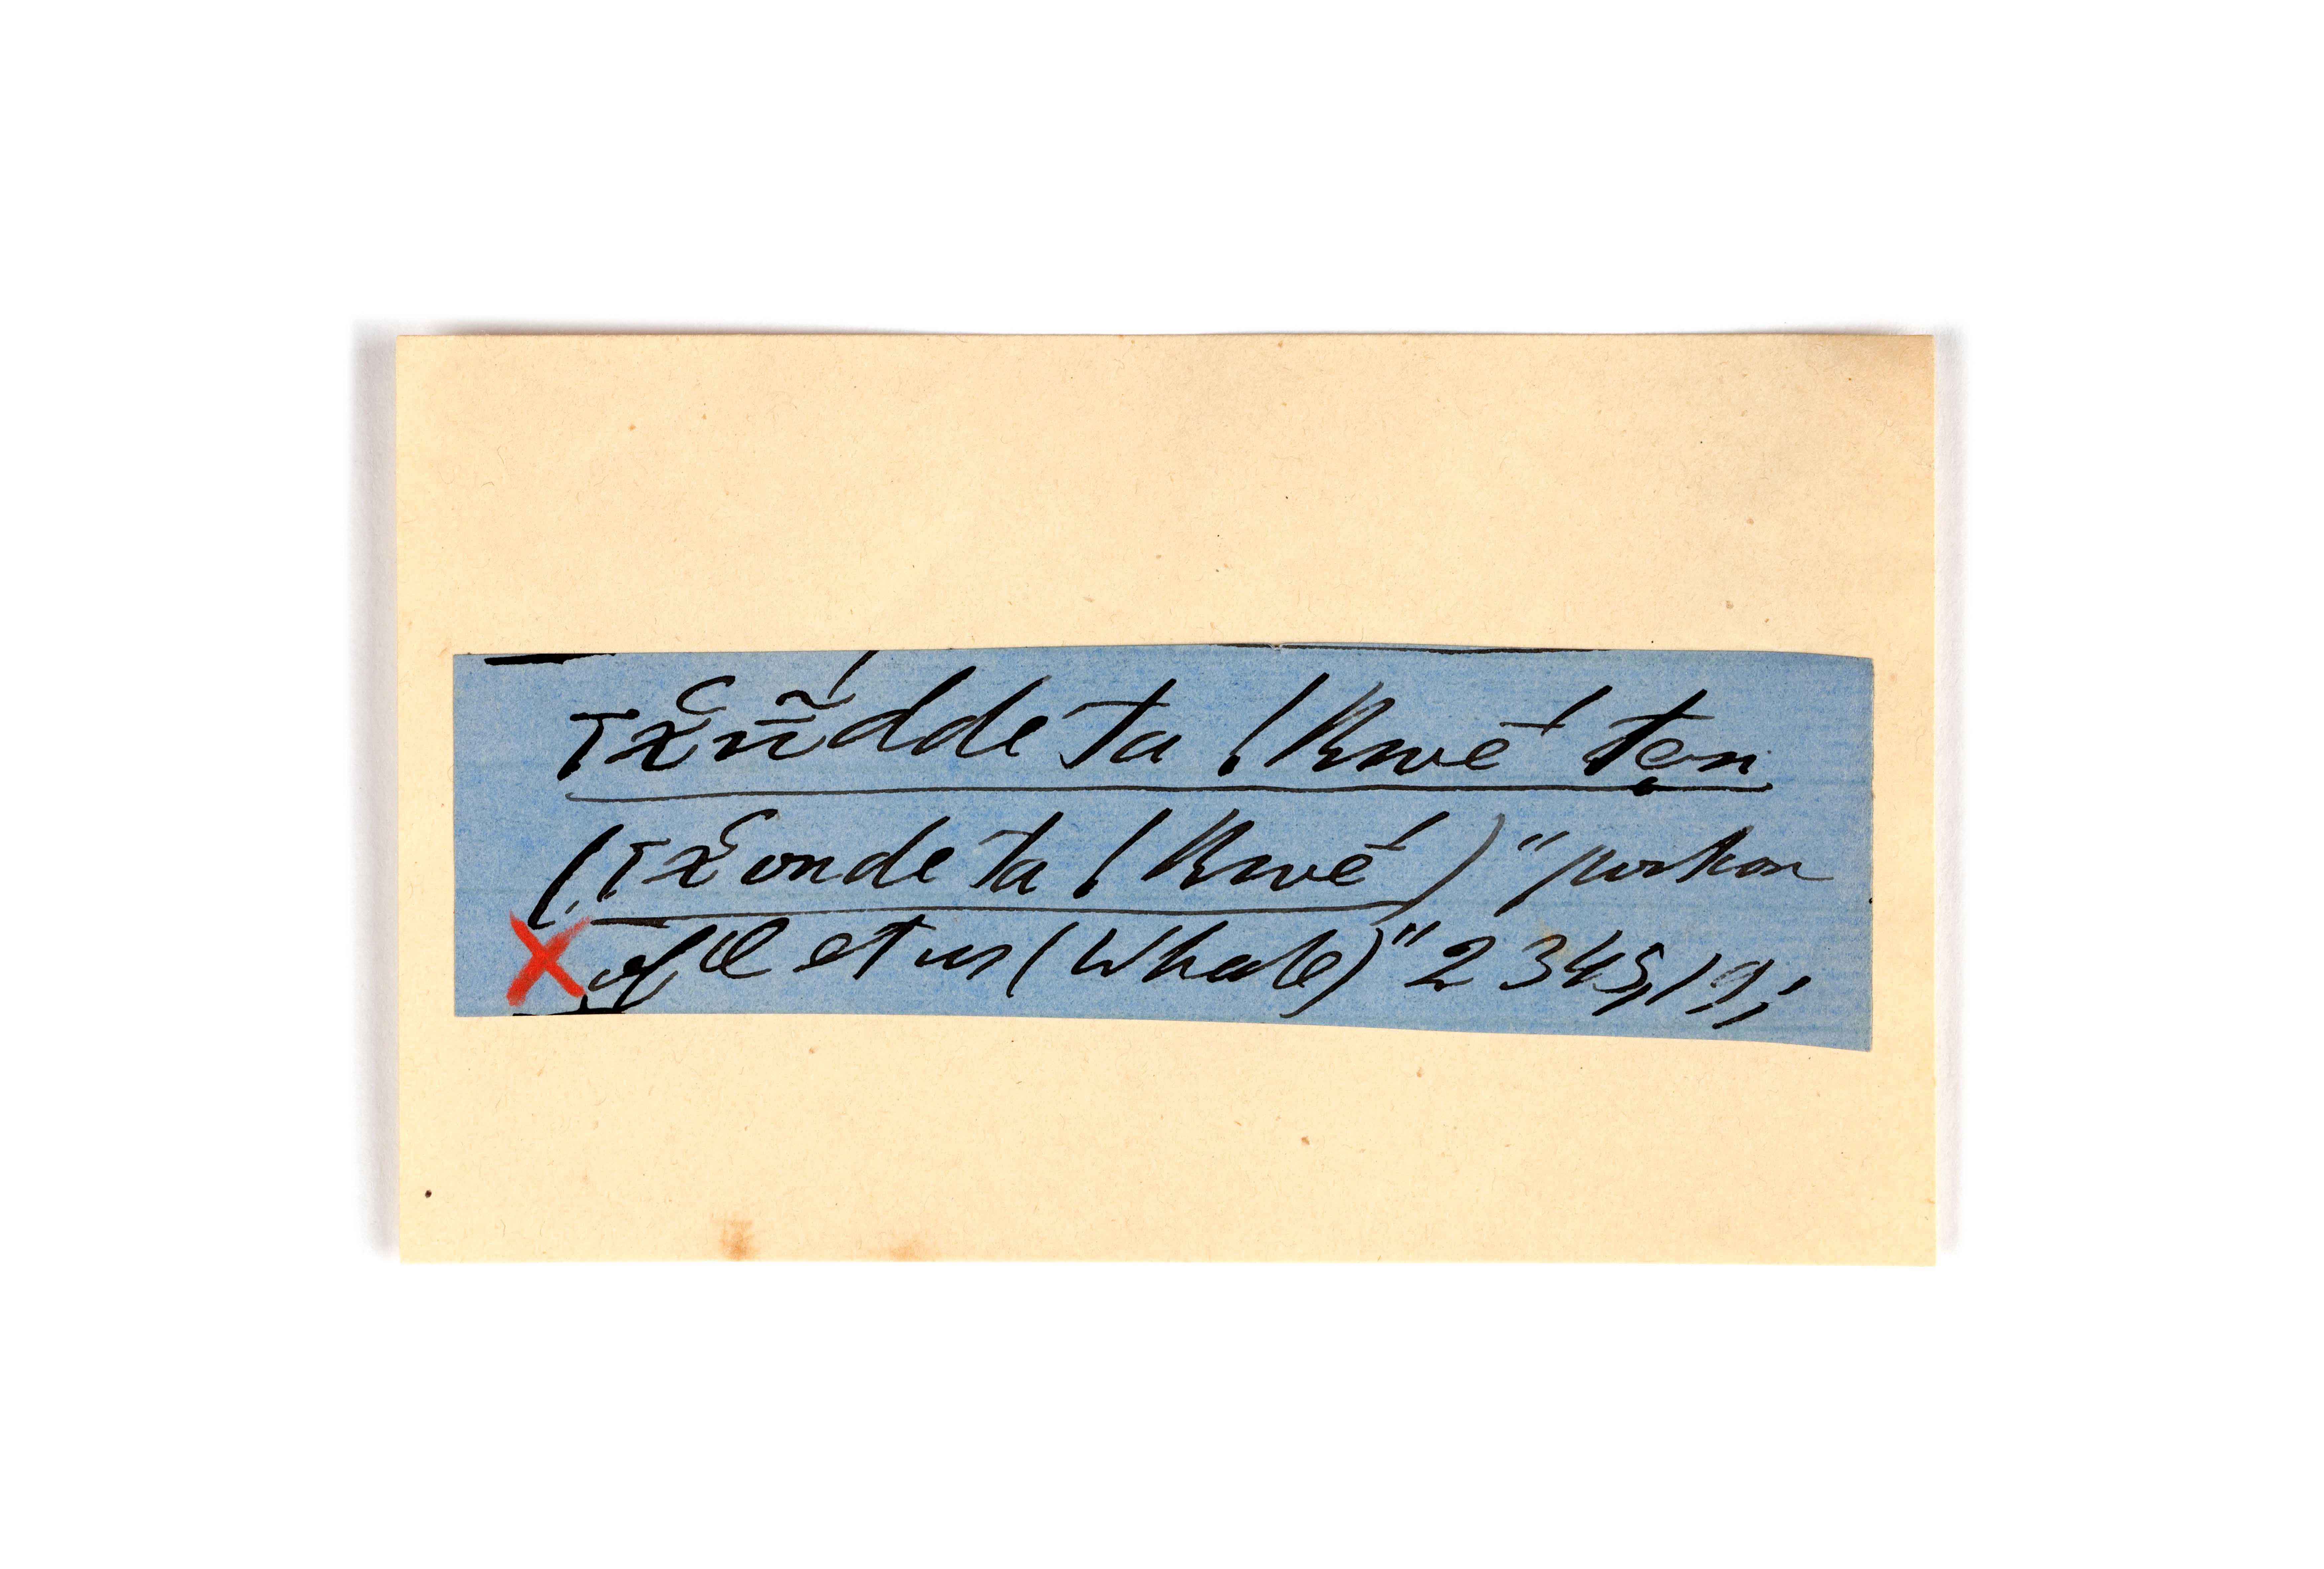 ꞇx̆ñdde ta !kwé ten
(ꞇx̆onde ta !kwé) " portion
X of Cetus (Whale) " 2345, 19,,